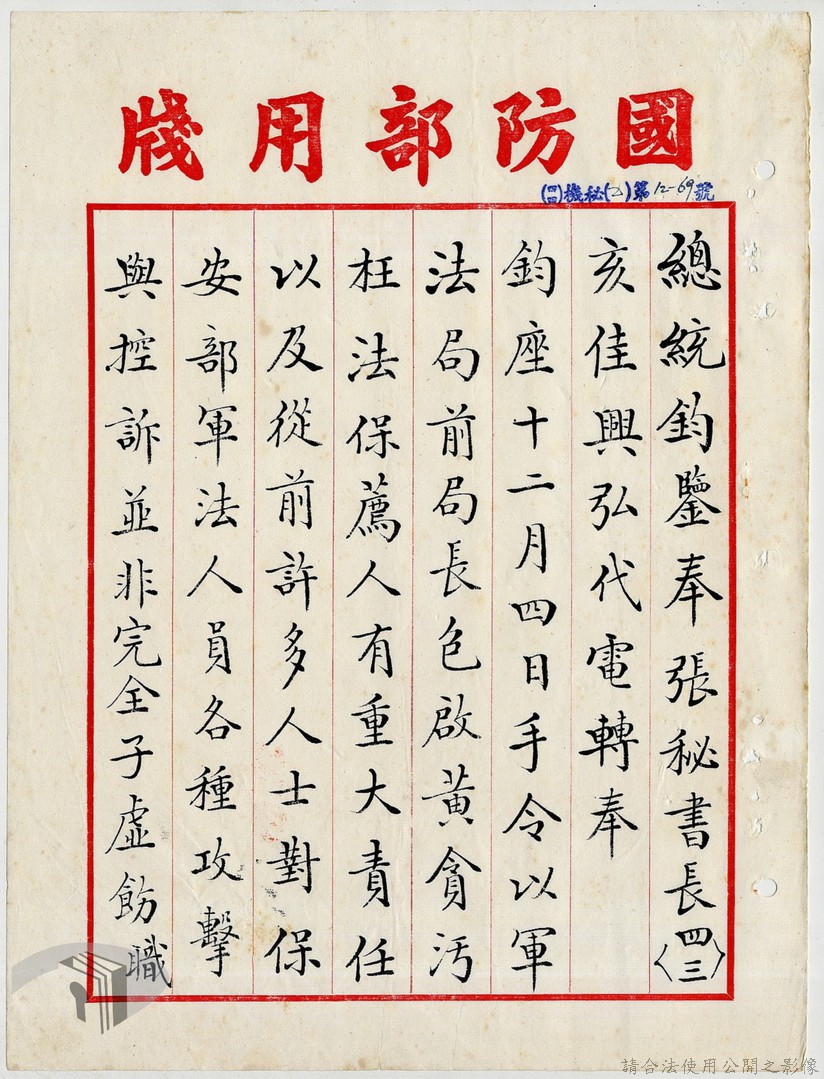 國防部用牋
(四四)機秘(乙)第12-69號
總統鈞鑒奉張秘書長〈四三〉
亥佳興弘代電轉奉
鈞座十二月四日手令以軍
法局前局長包啟黃貪污
枉法保薦人有重大責任
以及從前許多人士對保
安部軍法人員各種攻擊
與控訴並非完全子虛飭職
請合法使用公開之影像